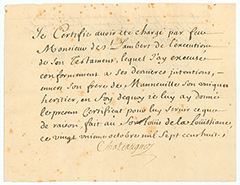 Je Certifie avoir été chargé par feu
Monieur des Jambert de l'execution
de son Testament, lequel J'ay executé
conformement a ses dernieres intentions,
envers son frere de Manneville son unique
heritier, en foy dequoy je luy ay donné
le present Certificat pour luy servir ce que
de raison, fait au de la Louisiane
ce vingt octobre mil Sept cent huit
Chateaugué